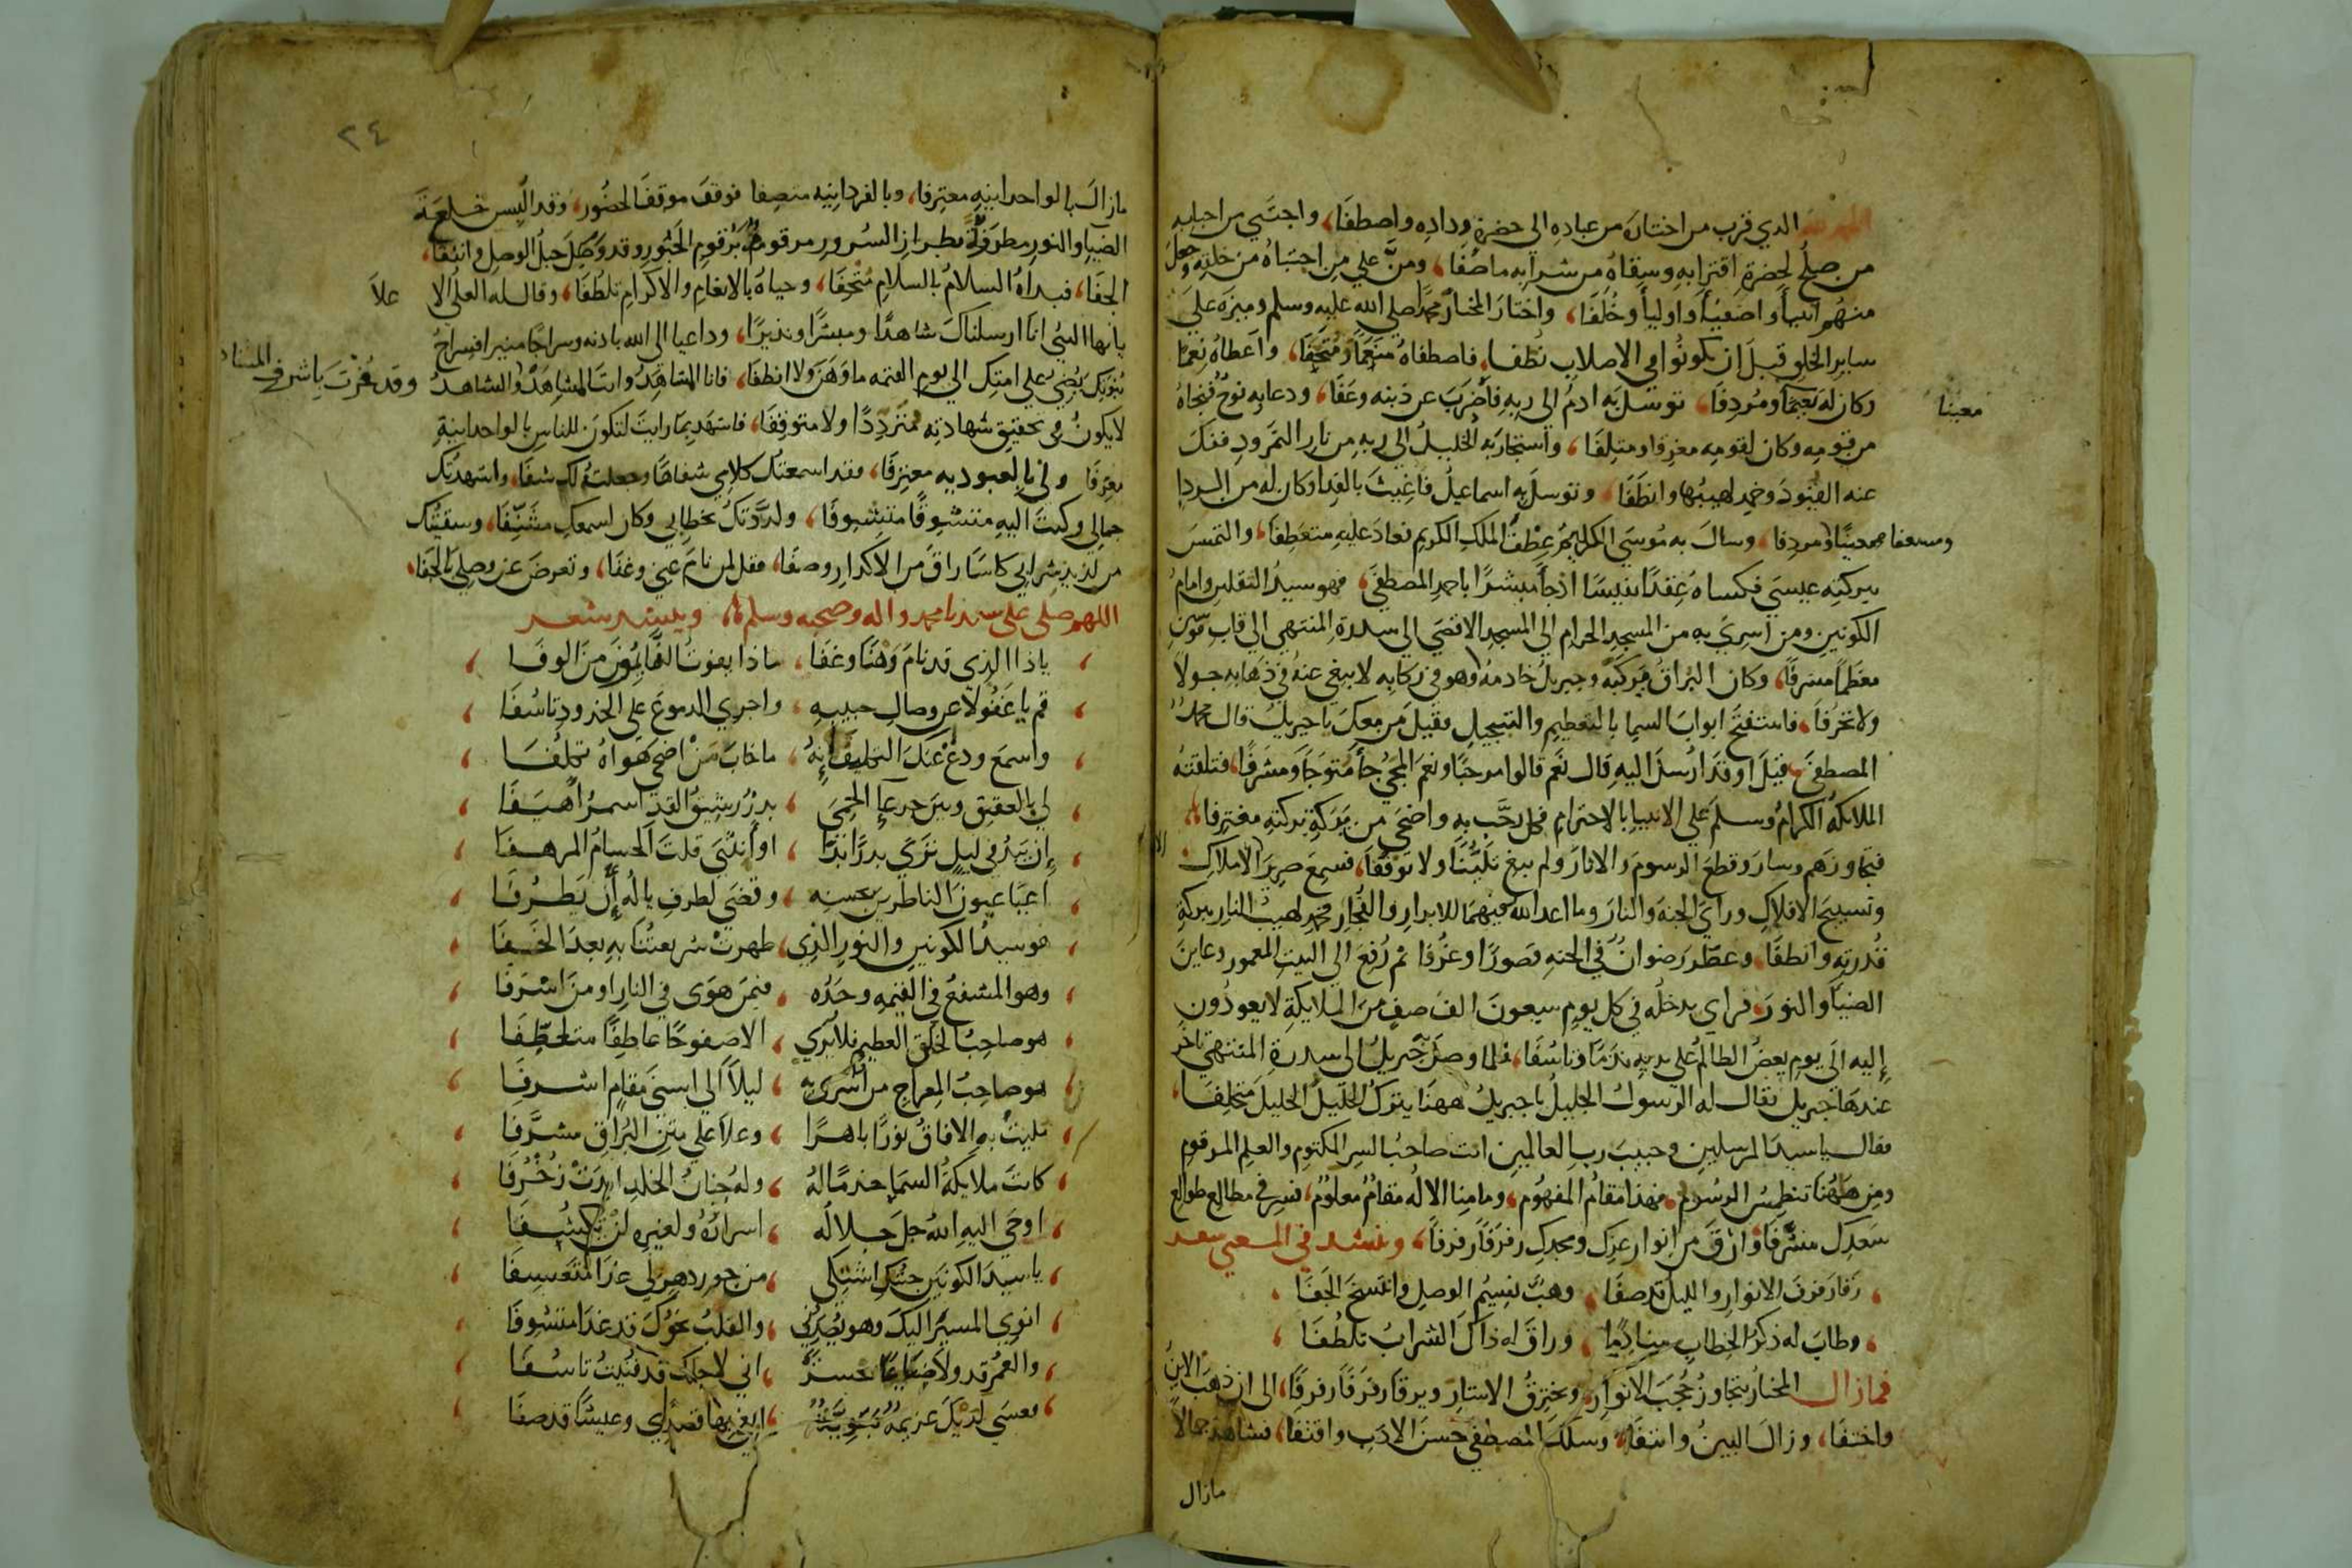 الحمد لله الذي قرب من اختاره من عباده الى حضرة وداده واصطفا، واجتبي من احبابه
من صلح لحضرة اقترابه وسقاه من شرابه ما صفا، ومنّ علي من اجتباه من خلقه وجعل
منهم انبيآ واصفيآ واوليآ وخُلَفَا، واختار المختار محمدا صلي الله عليه وسلم وميزه علي
ساير الخلق قبل ان يكونوا في الاصلاب نُطَفا، فاصطفاه منعّما ومُتحِفا، واعطاه نِعَمًا
وكان له معينا ومُردِفا، توسل به ادم الي ربه فاضرب عن ذنبه وعَفَا، ودعا به نوح فنجاه
معينا
من قومه وكان لقومه مغرقا ومتلِفَا، واستجار به الخليل الي ربه من نار النمرود ففك
عنه القيود وخمد لهيبُها وانطفا، وتوسل به اسماعيل فاغيث بالفدا وكان له من الردا
ومسعفا معينًا ومردفا، وسال به موسي الكليم عطف الملك الكريم فعاد عليه متعطفا، والتمس
ببركته عيسي فكساه عقدًا نفيسًا اذ جآ مبشرًا باحمد المصطفي، فهو سيد الثقلين وامام
الكونين ومن اسري به من المسجد الحرام الي المسجد الاقصي الي سدرة المنتهي الي قاب قوسين
معظمًا مشرفًا، وكان البراق مركبه وجبريل خادمه وهو في ركابه لا يبغي عنه في ذهابه حولا
ولا تحرُّفا، فاستفتح ابواب السما بالتعظيم والتبجيل فقيل من معك يا جبريل قال محمد
المصطفي، قيل اوقد ارسل اليه قال نعم قالوا مرحبًا ونعم المجي جآ متوجًا ومشرفًا، فتلقته
الملايكة الكرام وسلم علي الانبيا بالاحترام فكل رحّب به واضحي من بركة بركته مغترفا،
فتجاوزهم وسار وقطع الرسوم والاثار ولم يبغ تلبُّثًا ولا توقفا، فسمع صرير الاملاك
وتسبيح الافلاك وراي الجنة والنار وما اعد الله فيهما للابرار والفجار فخمد لهيب النار ببركة
قدرته وانطفا، وعطّر رضوان في الجنه قصورًا وغرفا ثم رُفع الي البيت المعمور وعاين
الضيآ والنور، فراي يدخله في كل يوم سبعون الف صف من الملايكة لا يعودون
اليه الي يوم يعض الظالم علي يديه ندمًا وتاسُّفا، فلما وصل جبريل الى سدرة المنتهي تاخر
عندها جبريل فقال له الرسول الجليل يا جبريل ههنا يترك الخليل الخليل متخلفا،
فقال يا سيد المرسلين وحبيب رب العالمين انت صاحب السر المكتوم والعلم المرقوم
ومن ههنا تنطمس الرسوم، فهذا مقام المفهوم، وما منا الا له مقام معلوم، فسر في مطالع طوالع
سعدك مشرِّفا وارق من انوار عزك ومجدك رفرفًا رفرفًا، وننشد في المعني شعر
رَقا رفرف الانوار والليل قد صفا، وهبّ نسيم الوصل وانتسخ الجفا
وطاب له ذكر الخطاب منادمًا، وراق له ذاك الشراب تلطُّفا
فما زال المختار يتجاوز حُجُب الانوار، ويخترق الاستار ويرقا رفرفًا رفرفًا، الى ان ذهب الاين
واختفا، وزال البين وانتفا، وسلك المصطفي حسن الادب واقتفا، فشاهد جمالا
مازال
٢٤
مازال بالواحدانيه معترفا، وبالفردانيه متصفا فوقف موقف الحضور، وقد البس خلعة
الضيا والنور مطرفة بطراز السرور مرقومة برقوم الحبور وقد وصل حبل الوصل وانتفا،
الجفا، فبداه السلام بالسلام متحفا، وحياه بالانعام والاكرام تلطُّفا، وقال له العلي الاعلا
يا ايها النبي انا ارسلناك شاهدا ومبشرًا ونذيرًا، وداعيا الى الله باذنه وسراجًا منيرا فسراج
نبوتك يضي علي امتك الي يوم القيمه ما وهن ولا انطفا، فانا المشاهَد وانت المشاهِد والشاهد وقد عُرفت باشرف
لا يكون في تحقيق شهادته متردِّدًا ولا متوقفا، فاشهد بما رايت لتكون للناس بالواحدانية
معرِّفا ولي بالعبوديه معترفا، فقد اسمعتك كلامي شفاها وجعلته لك شفا، واشهدتك
جمالي وكنت اليه متشوقًا متشوفا، ولذّذتك بخطابي وكان لسمعك مشنِّفا، وسقيتك
من لذيذ شرابي كاسًا راق من الاكدار وصفا، فقل لمن نام عني وغفا، وتعوض عن وصلي بالجفا،
اللهم صلى على سيدنا محمد واله وصحبه وسلم، وينشد شعر
يا ذا الذي قد نام وَهْنًا وغفا، ماذا يفوت الغافلون من الوفا
قم يا غفولا عن وصال حبيبه، واجري الدموع علي الخدود تاسُّفا
واسمع ودع عنك التخليف انه، ما خاب من اضحي هواه تكلُّفا
لي بالعقيق وبين جرعآ الحمي، بدرٌ رشيق القد اسمر اهيفا
ان يبد في ليل تري بدرًا بدا، او انثني قلت الحسام المرهفا
اعيا عيون الناظرين بحسنه، وقضي لطرف ياله ان يطرفا
هو سيد الكونين والنور الذي، ظهرت شريعتنا به بعد الخفا
وهو المشفع في القيمه وحده، فيمن هوى في النار او من اسرفا
هو صاحب الخلق العظيم فلا يري، الا صفوحًا عاطفًا متلطّفا
هو صاحب المعراج من اسري به، ليلاً الى اسني مقام اشرفا
مليت به الافاق نورًا باهرًا، وعلا علي متن البراق مشرَّفا
كانت ملايكة السما خدمًا له، وله جنان الخلد ابدت زُخرُفا
اوحي اليه الله جل جلاله، اسراره ولغيره لن تُكشفا
يا سيد الكونين جيتك اشتكي، من جور دهر لي غدا متعسفا
انوي المسير اليك وهو يصدني، والقلب نحوك قد غدا متشوفا
والعمر قد ولا ضياعًا حسرةً، اني لاجلك قد فنيت تاسُّفا
فعسي لديك عزيمة نبوية، ابلغ بها قصدي وعيشًا قد صفا